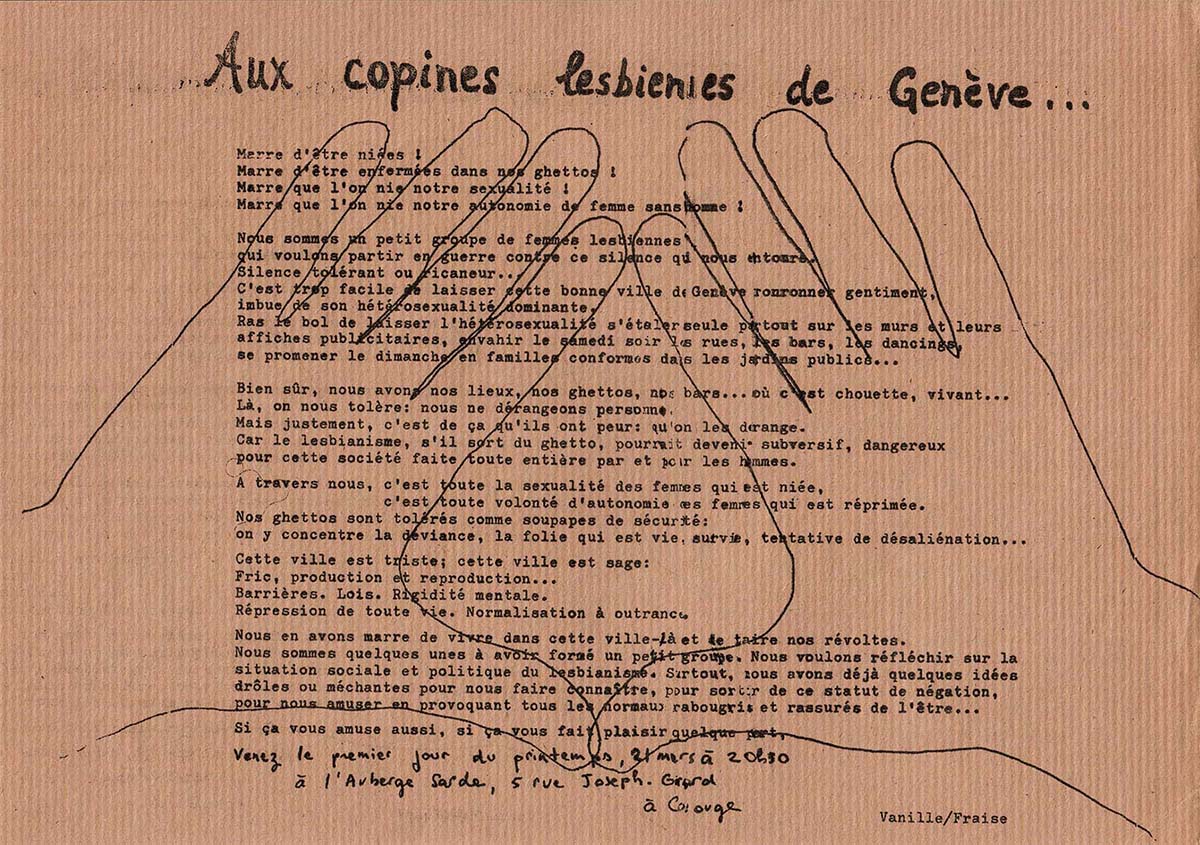 Aux copines lesbiennes de Genève...
Marre d'être niées !
Marre d'être enfermées dans nos ghettos !
Marre que l'on nie notre sexualité !
Marre que l'on nie notre autonomie de femme sans homme !
Nous sommes un petit groupe de femmes lesbiennes
qui voulons partir en guerre contre ce silence qui nous entoure.
Silence tolérant ou ricaneur...
C'est trop facile de laisser cette bonne ville de Genève ronronner gentiment,
imbue de son hétérosexualité dominante.
Ras le bol de laisser l'hétérosexualité s'étaler seule partout sur les murs et leurs
affiches publicitaires, envahir le samedi soir les rues, les bars, les dancings,
se promener le dimanche en familles conformes dans les jardins publics...
Bien sûr, nous avons nos lieux, nos ghettos, nos bars... où c'est chouette, vivant...
Là, on nous tolère: nous ne dérangeons personne.
Mais justement, c'est de ça qu'ils ont peur: qu'on les dérange.
Car le lesbianisme, s'il sort du ghetto, pourrait devenir subversif, dangereux
pour cette société faite toute entière par et pour les hommes.
A travers nous, c'est toute la sexualité des femmes qui est niée,
c'est toute volonté d'autonomie des femmes qui est réprimée.
Nos ghettos sont tolérés comme soupapes de sécurité:
on y concentre la déviance, la folie qui est vie, survie, tentative de désaliénation...
Cette ville est triste; cette ville est sage:
Fric, production et reproduction...
Barrières. Lois. Rigidité mentale.
Répression de toute vie. Normalisation à outrance.
Nous en avons marre de vivre dans cette ville-là et de taire nos révoltes.
Nous sommes quelques unes à avoir formé un petit groupe. Nous voulons réfléchir sur la
situation sociale et politique du lesbianisme. Surtout, nous avons déjà quelques idées
drôles ou méchantes pour nous faire connaître, pour sortir de ce statut de négation,
pour nous amuser en provoquant tous les normaux rabougris et rassurés de l'être...
Si ça vous amuse aussi, si ça vous fait plaisir quelque part,
Venez le premier jour du printemps, 21 mars à 20h30
à l'Auberge Sarde, 5 rue Joseph-Girard
à Carouge
Vanille/Fraise